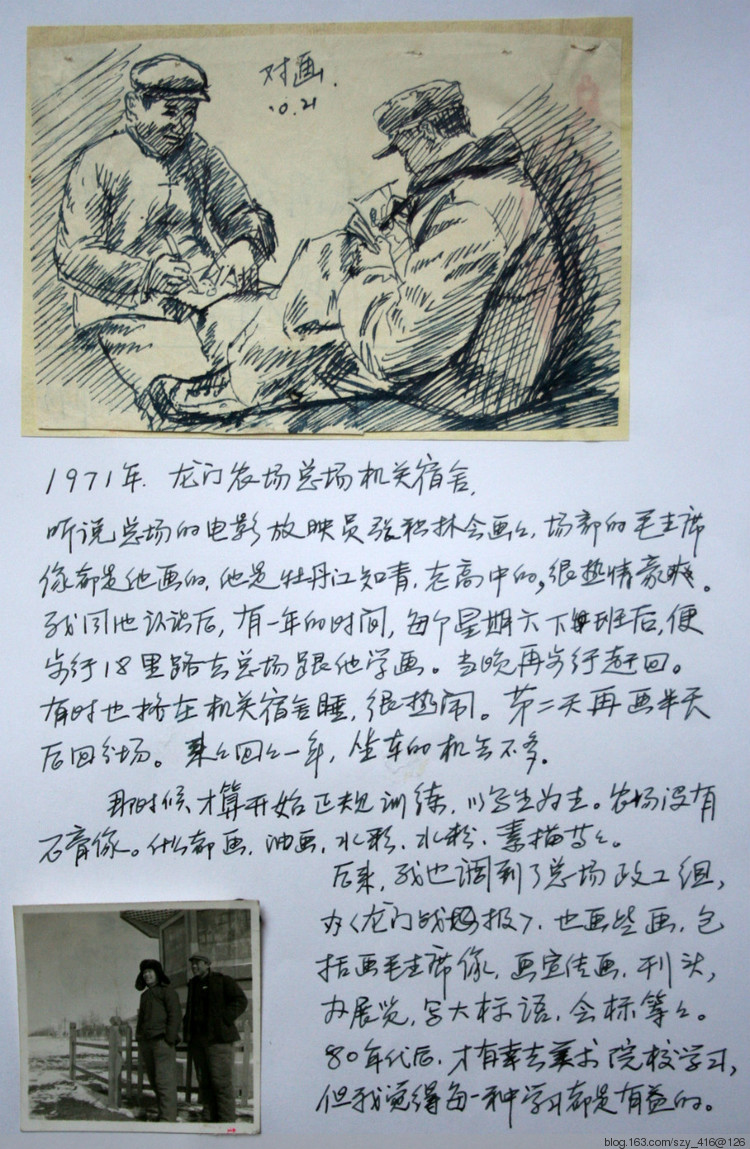 对画.
10.21
1971年. 龙门农场总场机关宿舍.
听说总场的电影放映员张积林会画々, 场部的毛主席
像都是他画的. 他是牡丹江知青, 老高中的, 很热情豪爽。
我同他认识后, 有一年的时间, 每个星期六下班后, 便
步行18里路去总场跟他学画。当晚再步行赶回。
有时也挤在机关宿舍睡, 很热闹。第二天再画半天
后回分场。来々回々一年, 坐车的机会不多.
那时候才算开始正规训练, 以写生为主。农场没有
石膏像。什么都画. 油画. 水彩. 水粉. 素描等々。
后来, 我也调到了总场政工组,
办〈龙门战报〉. 也画些画, 包
括画毛主席像, 画宣传画. 刊头,
办展览, 写大标语, 会标等々。
80年代后, 才有幸去美术院校学习,
但我觉得每一种学习都是有益的。
blog.163.com/szy_416@126